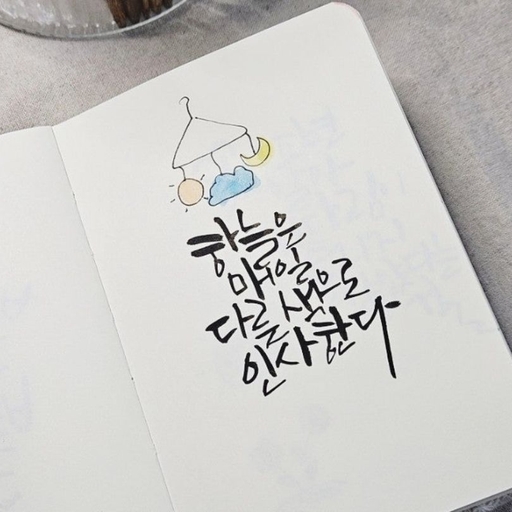 하늘은
매일
다른 색으로
인사한다